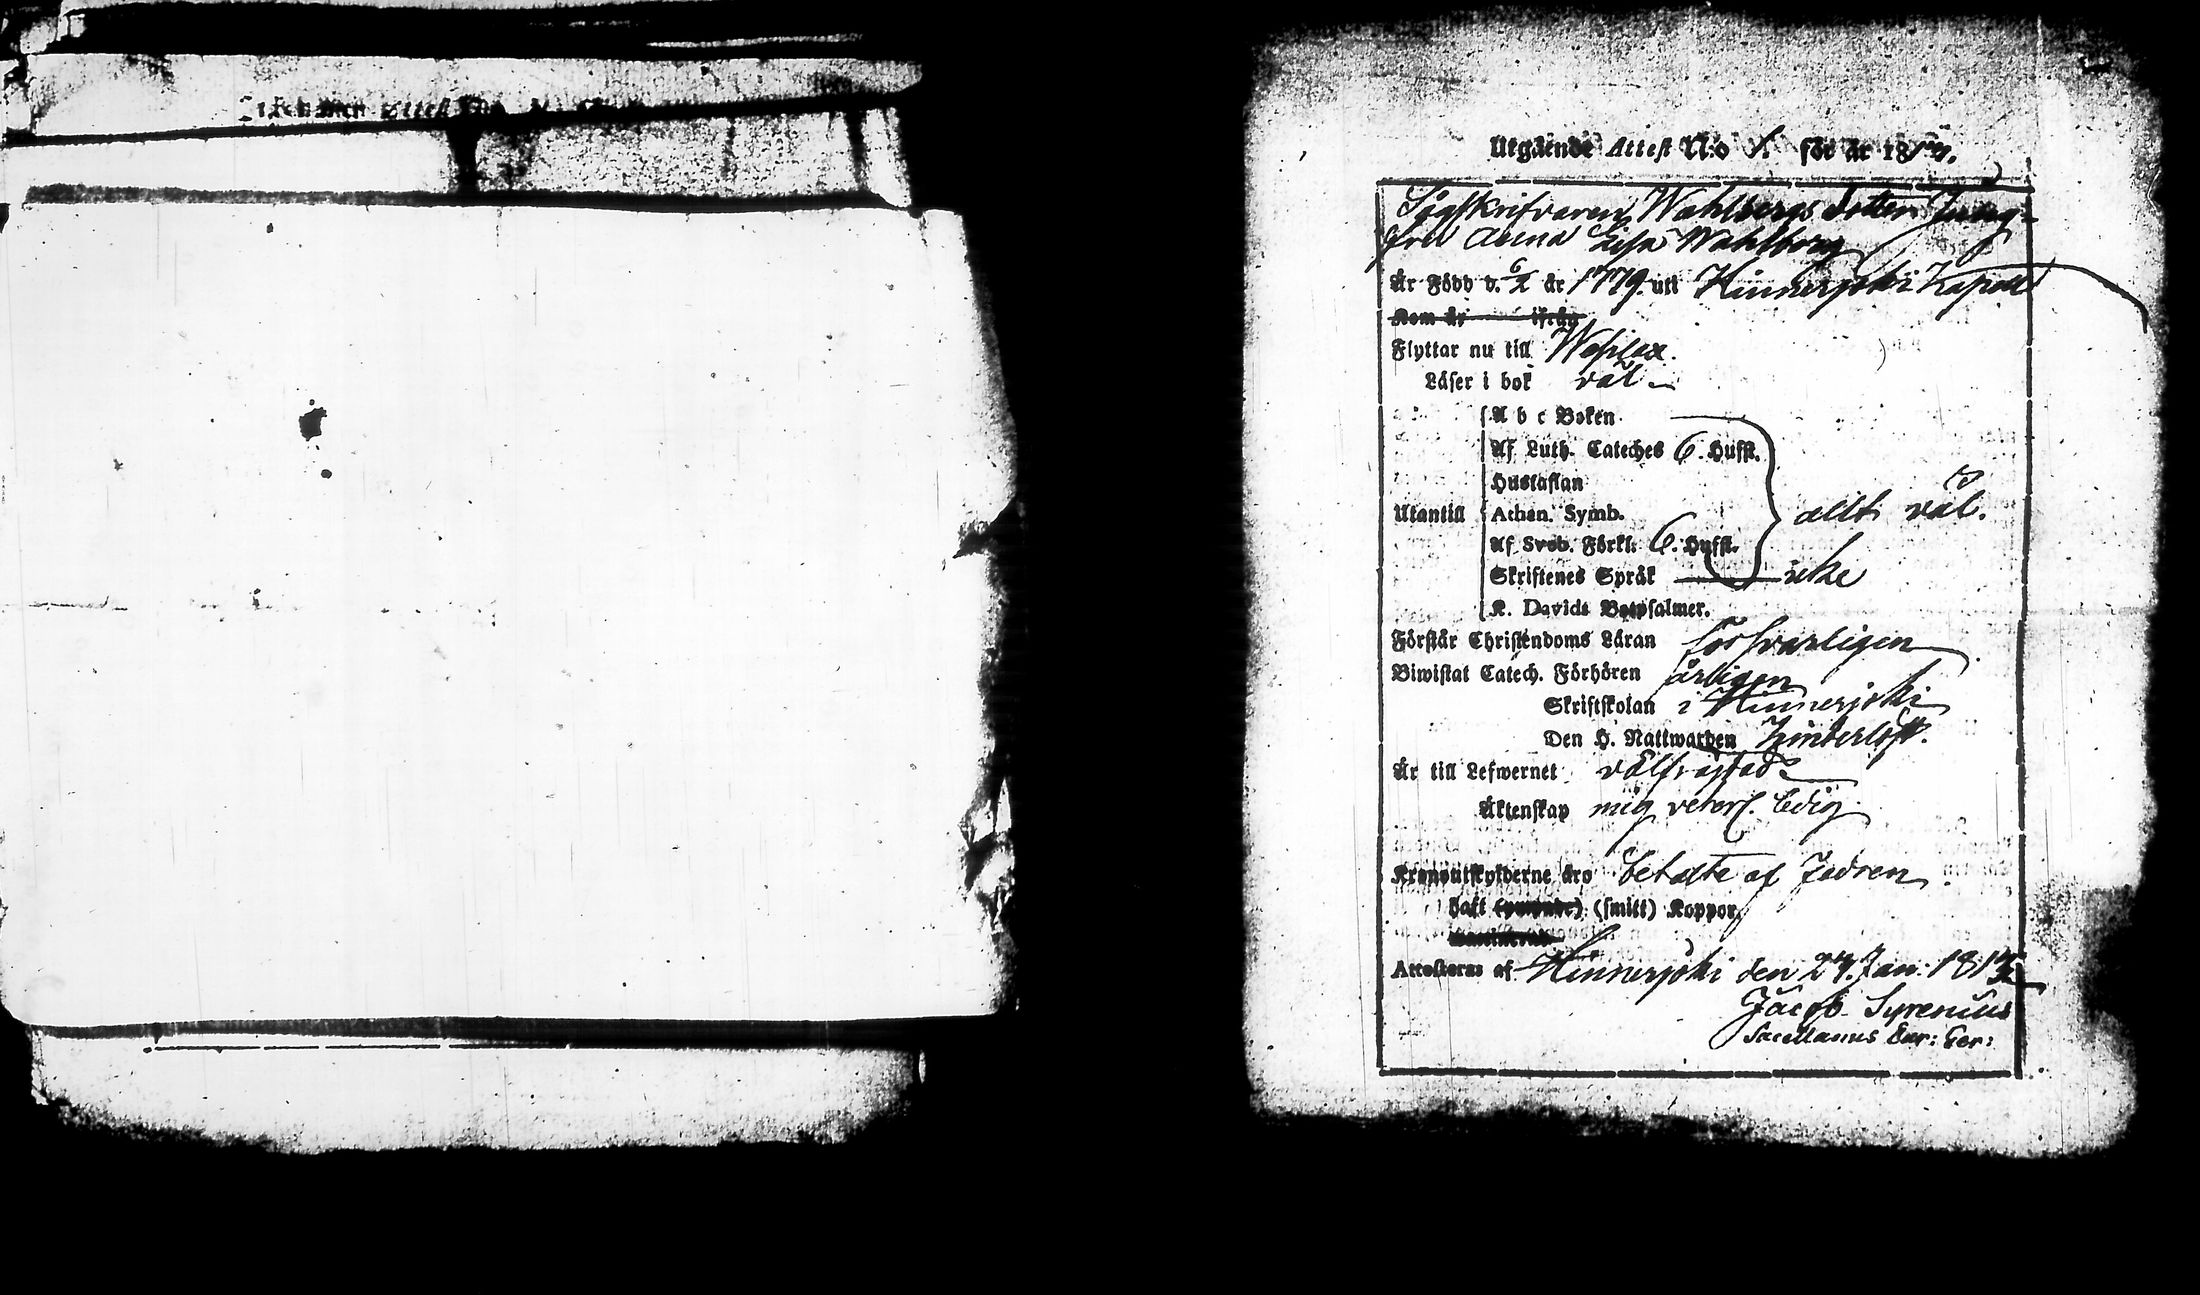 Utgående Attest N:o 1. för år 18
Sågskrifvaren Wahlbergs dotter Jung-
fru Anna Lisa Wahlberg
Är Född d. 6/2 år 1779. uti Hinnerjoki Kapell
Kom år ifrån
Flyttar nu till
Läser i bok väl
A b c Boken
Af Luth. Cateches 6. Hufst.
Hustaflan
Utantill Athan. Symb. allt väl.
Af Sveb. Förkl: 6. Hufst.
Skriftenes Språk icke
K. Davids Botpsalmer.
Förstår Christendoms Läran försvarligen
Biwistat Catech. Förhören årligen
Skriftskolan i Hinnerjoki
Den H. Nattwarden
Är till Lefwernet välfräjdad
Äktenskap mig veterl. ledig
Kronoutskylderne äro betalte af Fadren
haft (smitt) Koppor.
Attesteras af Hinnerjoki den 27. Jan: 181
Jacob Syrenius
Sacellanus